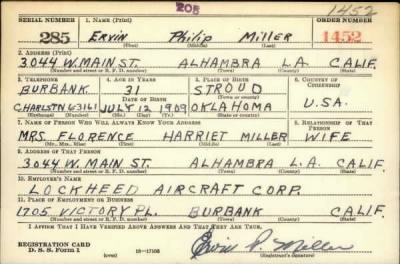 205
1452
SERIAL NUMBER 1. NAME (Print) ORDER NUMBER
285 ERVIN Philip Miller 1452
(First) (Middle) (Last)
2. ADDRESS (Print)
3044 W. MAIN ST. ALHAMBRA L.A. CALIF.
(Number and street or R. F. D. number) (Town) (County) (State)
3. TELEPHONE 4. AGE IN YEARS 5. PLACE OF BIRTH 6. COUNTRY OF CITIZENSHIP
BURBANK 31 STROUD
DATE OF BIRTH (Town or county)
CHARLSTN 63161 JULY 12 1909 OKLAHOMA U.S.A.
(Exchange) (Number) (Mo.) (Day) (Yr.) (State or country)
7. NAME OF PERSON WHO WILL ALWAYS KNOW YOUR ADDRESS 8. RELATIONSHIP OF THAT PERSON
MRS. FLORENCE HARRIET MILLER WIFE
(Mr., Mrs., Miss) (First) (Middle) (Last)
9. ADDRESS OF THAT PERSON
3044 W. MAIN ST. ALHAMBRA L.A. CALIF.
(Number and street or R. F. D. number) (Town) (County) (State)
10. EMPLOYER'S NAME
LOCKHEED AIRCRAFT CORP.
11. PLACE OF EMPLOYMENT OR BUSINESS
1705 VICTORY PL. BURBANK CALIF.
(Number and street or R. F. D. number) (Town) (County) (State)
I AFFIRM THAT I HAVE VERIFIED ABOVE ANSWERS AND THAT THEY ARE TRUE.
REGISTRATION CARD
D. S. S. Form 1 (over) 16—17105 Ervin P. Miller
(Registrant's signature)